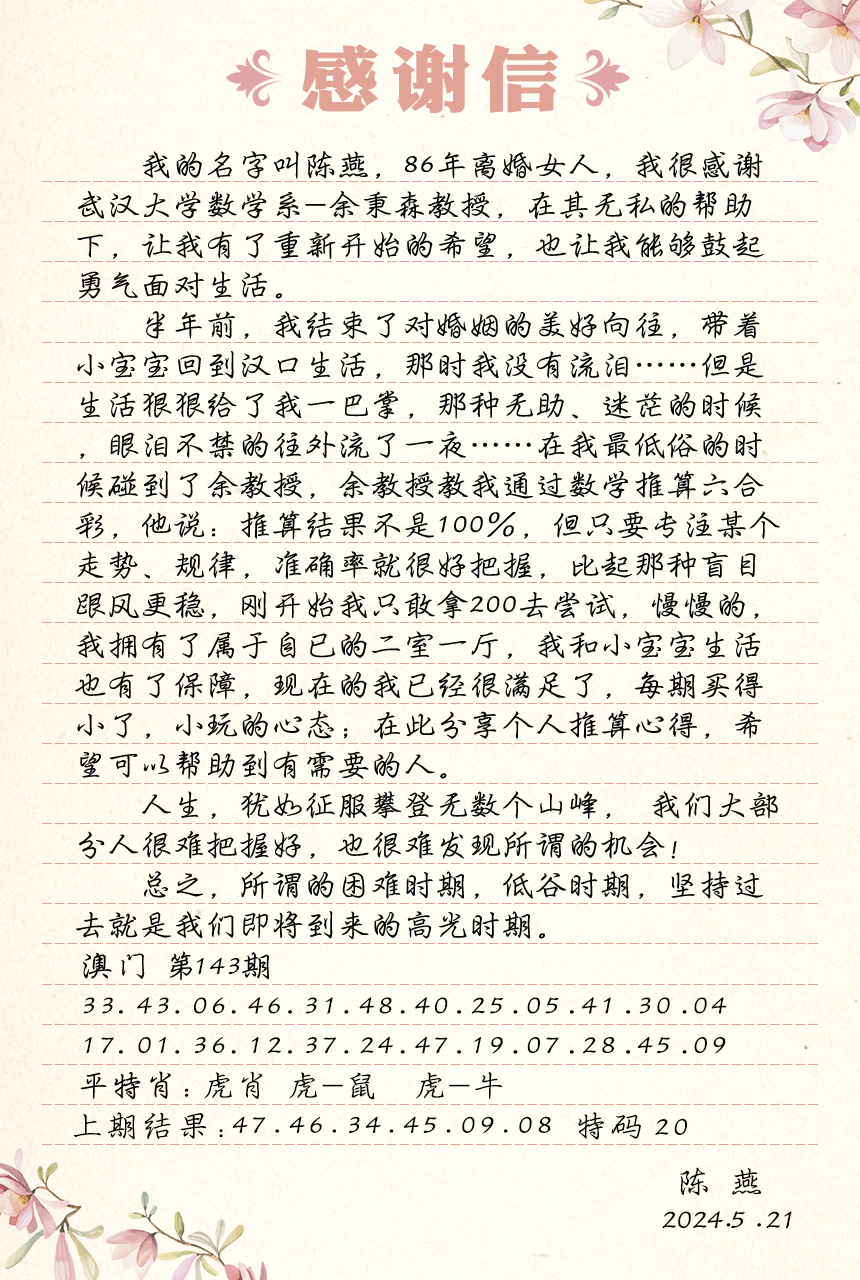 感谢信
我的名字叫陈燕，86年离婚女人，我很感谢
武汉大学数学系—余秉森教授，在其无私的帮助
下，让我有了重新开始的希望，也让我能够鼓起
勇气面对生活。
半年前，我结束了对婚姻的美好向往，带着
小宝宝回到汉口生活，那时我没有流泪……但是
生活狠狠给了我一巴掌，那种无助、迷茫的时候
，眼泪不禁的往外流了一夜……在我最低俗的时
候碰到了余教授，余教授教我通过数学推算六合
彩，他说：推算结果不是100%，但只要专注某个
走势、规律，准确率就很好把握，比起那种盲目
跟风更稳，刚开始我只敢拿200去尝试，慢慢的，
我拥有了属于自已的二室一厅，我和小宝宝生活
也有了保障，现在的我已经很满足了，每期买得
小了，小玩的心态；在此分享个人推算心得，希
望可以帮助到有需要的人。
人生，犹如征服攀登无数个山峰， 我们大部
分人很难把握好，也很难发现所谓的机会！
总之，所谓的困难时期，低谷时期，坚持过
去就是我们即将到来的高光时期。
澳门 第143期
33.43.06.46.31.48.40.25.05.41.30.04
17.01.36.12.37.24.47.19.07.28.45.09
平特肖：虎肖 虎—鼠 虎—牛
上期结果：47.46.34.45.09.08 特码 20
陈 燕
2024.5.21